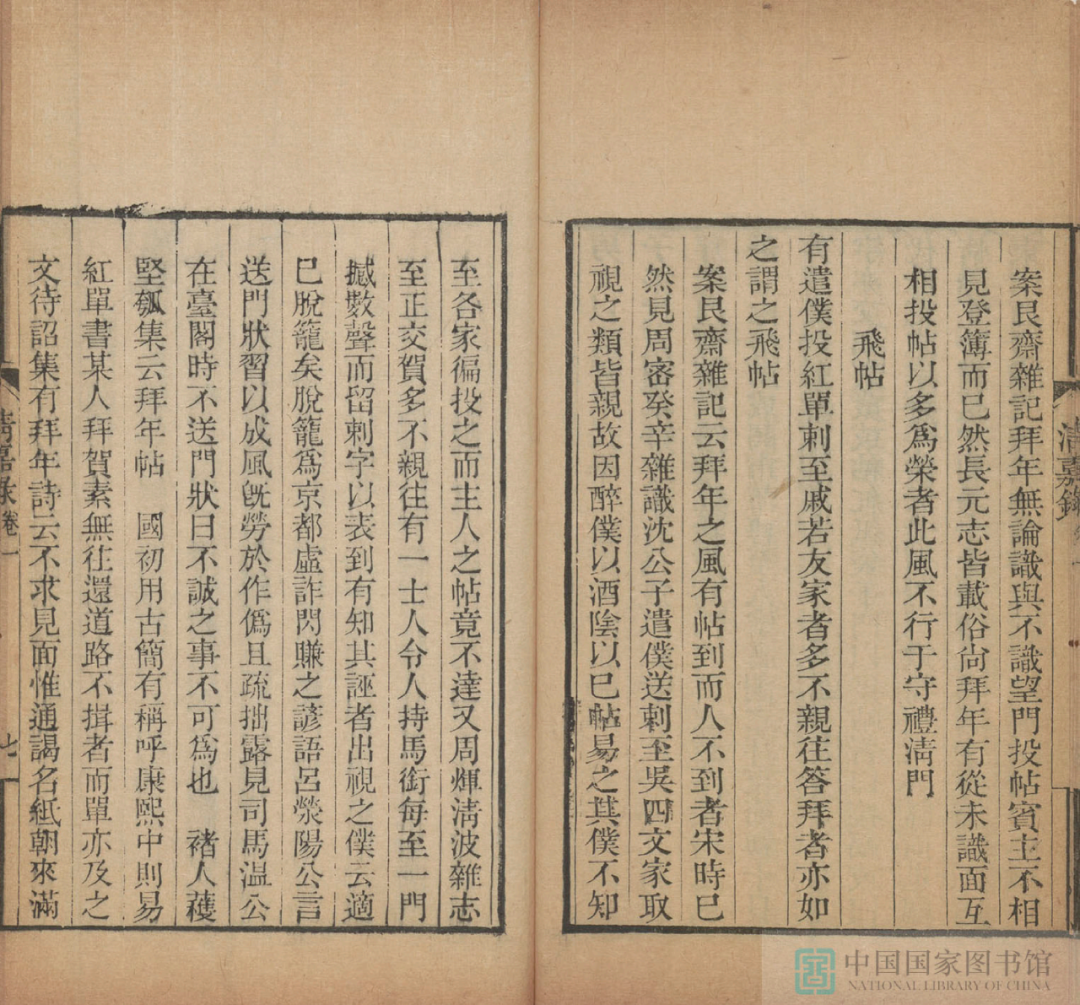 案艮齋雜記拜年無論識與不識望門投帖賓主不相
見登簿而已然長元志皆載俗尙拜年有從未識面互
相投帖以多爲榮者此風不行于守禮淸門
飛帖
有遣僕投紅單刺至戚若友家者多不親往答拜者亦如
之謂之飛帖
案艮齋雜記云拜年之風有帖到而人不到者宋時已
然見周密癸辛雜識沈公子遣僕送刺至吳四文家取
視之類皆親故因醉僕以酒陰以已帖易之其僕不知
至各家徧投之而主人之帖竟不達又周煇淸波雜志
至正交賀多不親往有一士人令人持馬銜每至一門
撼數聲而留刺字以表到有知其誣者出視之僕云適
已脫籠矣脫籠爲京都虛詐閃賺之諺語呂滎陽公言
送門狀習以成風旣勞於作僞且疏拙露見司馬温公
在臺閣時不送門狀曰不誠之事不可爲也 褚人穫
堅瓠集云拜年帖 國初用古簡有稱呼康熙中則易
紅單書某人拜賀素無往還道路不揖者而單亦及之
文待詔集有拜年詩云不求見面惟通謁名紙朝來滿
淸嘉錄
淸嘉录 卷一
七
中国国家图书馆
NATIONAL LIBRARY OF CHINA